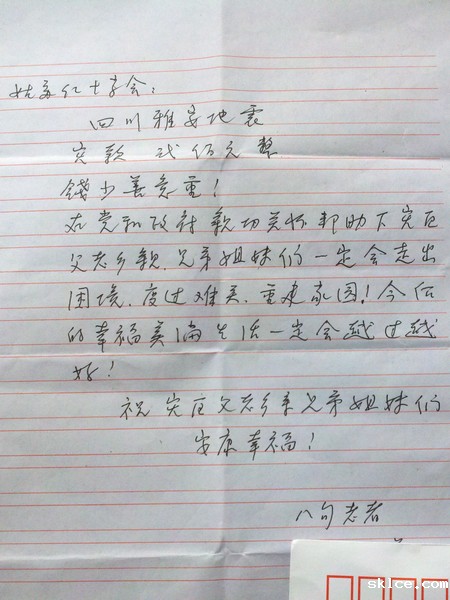 姑苏红十字会：
四川雅安地震
灾款 贰佰元整
钱少善意重！
在党和政府亲切关怀帮助下灾区
父老乡亲，兄弟姐妹们一定会走出
困境，度过难关，重建家园！今后
的幸福美满生活一定会越过越
好！
祝灾区父老乡亲兄弟姐妹们
安康幸福！
八旬老者
www.sklce.com